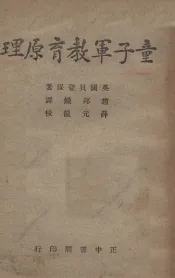 童子軍教育原理
英國貝登堡著
趙邦鑅譯
薛元龍校
正中書局印行